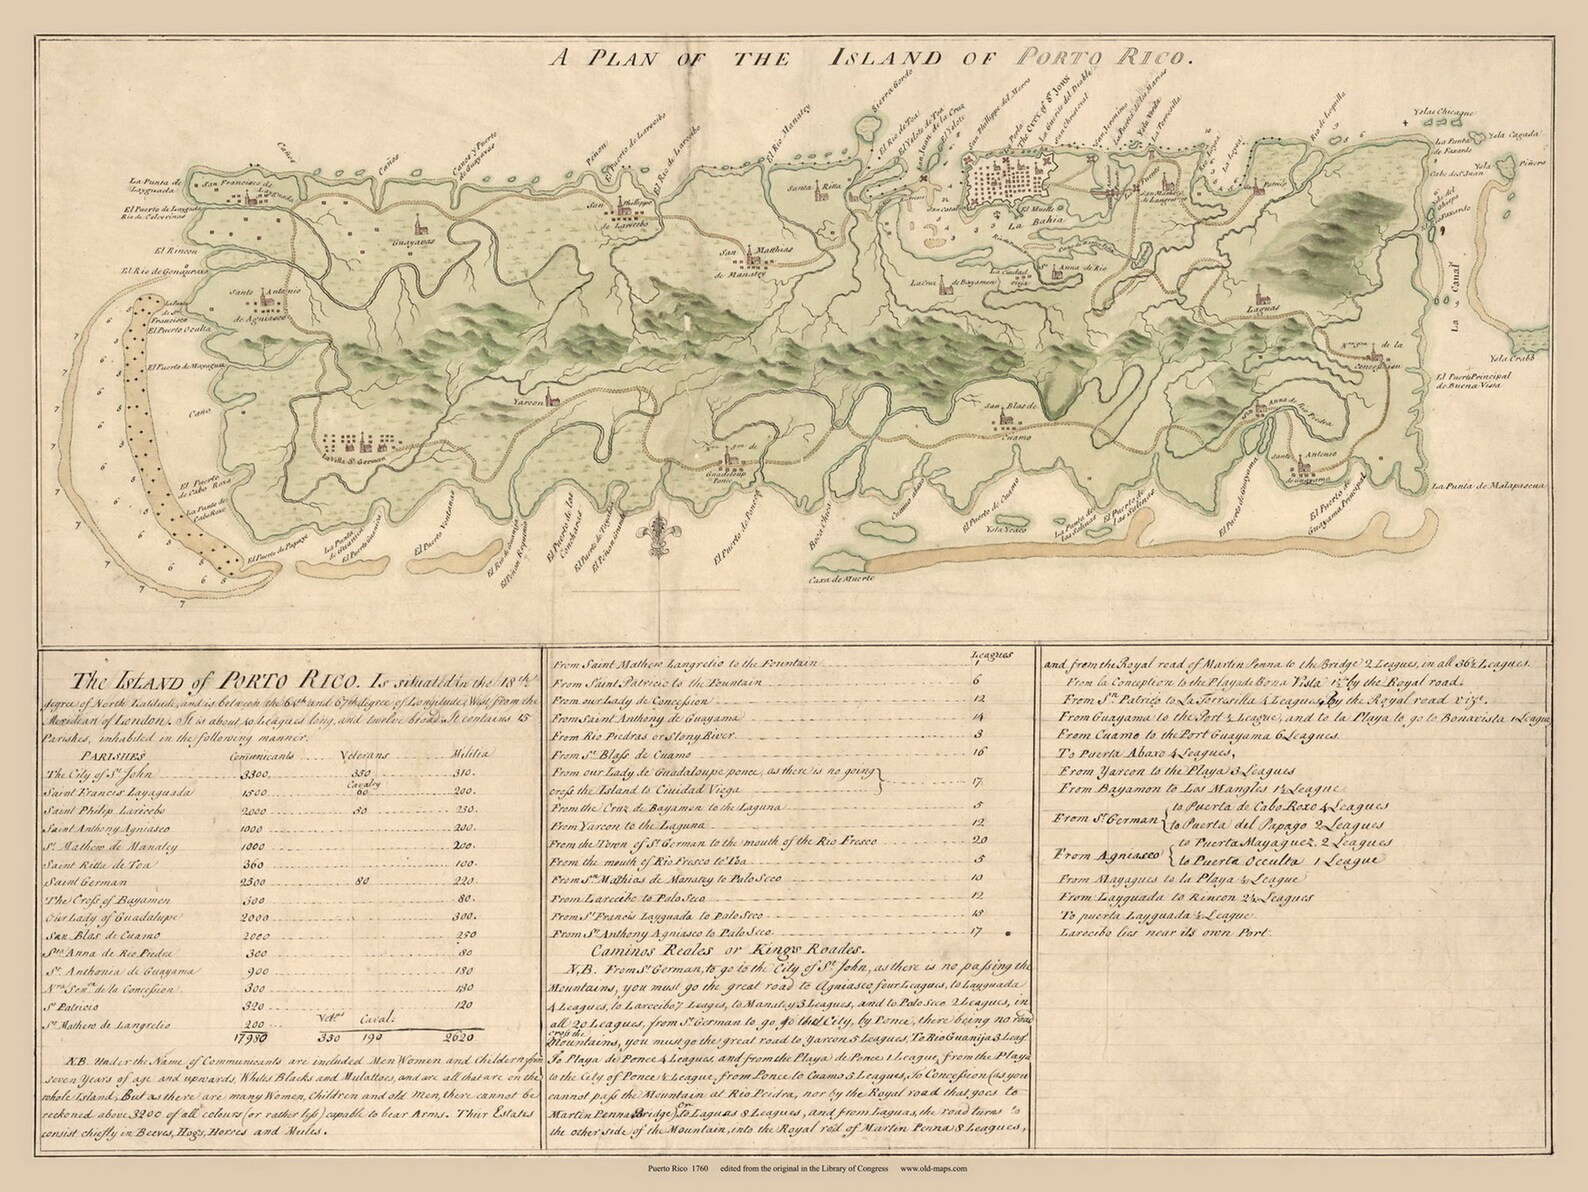 A PLAN OF THE ISLAND OF PORTO RICO.
Sierra Gordo
El Rio Manatey
El Rio de Toa
San Phillippe del Morro
The City of St. John
San Christoval
San Jeronimo
Rio de Loquillo
Yslas Chicague
Ysla Cagada
La Punta de Faxardo
Cabo de S. Juan
Ysla Piñero
Caños
Caños
Caños y Puerto de Guayavas
Piñon
El Puerto de Larecibo
El Rio de Larecibo
La Punta de Layguada
San Francisco de Layguada
El Puerto de Layguada
Rio de Calverinas
El Rincon
El Rio de Gonauraus
Guayavas
San Phillippo de Larecibo
San Matthias de Manatey
Santa Ritta
El Muelle
La Bahia
La Ciudad vieja
La Cruz de Bayamon
Laguas
La Canal
Ysla Crabb
Santo Antonio de Aguiasco
El Puerto Oculta
El Puerto de Mayagues
Caño
Yarcon
La Villa St. German
Guadeloup Ponce
San Blas de Cuamo
Santo Antonio de Guayama
de la Concepsion
El Puerto Principal de Buena Vista
La Punta de Malapascua
El Puerto de Cabo Roxo
La Punta de Cabo Roxo
El Puerto de Papago
El Puerto Ventanas
El Puerto de las Concharas
El Puerto de Ponce
Boca Chica
El Puerto de Cuamo
El Puerto de las Salinas
El Puerto de Guayama
El Puerto de Guayama Principal
Caxa de Muerto
The ISLAND of PORTO RICO. Is situated in the 18th
degree of North Latitude, and is between the 64th and 67th degree of Longitude West from the
Meridian of London. It is about 40 leagues long, and twelve broad. It contains 15
Parishes, inhabited in the following manner.
PARISHES Comunicants Veterans Militia
The City of St. John 3300 330 310.
Cavalry
Saint Francis Layaguada 1500 60 200.
Saint Philip Larecibo 2000 50 250.
Saint Anthony Agniasco 1000 200.
St. Mathew de Manatey 1000 200.
Saint Ritta de Toa 360 100.
Saint German 2500 80 220.
The Cross of Bayamen 300 80.
Our Lady of Guadalupe 2000 300.
San Blas de Cuamo 2000 250
Sta. Anna de Reo Piedra 300 80
St. Anthonia de Guayama 900 180
de la Concession 300 130
St. Patricio 320 120
St. Mathew de Langrelio 200 Vetns. Caval:
17980 330 190 2620
N.B. Under the Name of Comunicants are included Men Women and Childern from
seven Years of age and upwards, Whites Blacks and Mulattoes, and are all that are on the
whole Island, But as there are many Women, Children and old men, there cannot be
reckoned above 3200 of all colours (or rather less) capable to bear Arms. Their Estates
consist chiefly in Beeves, Hogs, Horses and Mules.
Leagues
From Saint Mathew Langrelio to the Fountain 1
From Saint Patricio to the Fountain 6
From our Lady of Concession 12
From Saint Anthony de Guayama 14
From Rio Piedras or Stony River 3
From St. Blass de Cuamo 16
From our Lady de Guadaloupe ponce, as there is no going
cross the Island to Ciuidad Viega 17.
From the Cruz de Bayamon to the Laguna 5
From Yarcon to the Laguna 12
From the Town of St. German to the mouth of the Rio Fresco 20
From the mouth of Rio Fresco to Toa 5
From St. Mathias de Manatey to Palo Seco 10
From Larecibo to Palo Seco 12
From St. Francis Layguada to Palo Seco 15
From St. Anthony Agniasco to Palo Seco 17
Caminos Reales or Kings Roades.
N.B. From St. German, to go to the City of St. John, as there is no passing the
Mountains, you must go the great road to Agniasco four Leagues, to Layguada
4 Leagues, to Larecibo 7 Leages, to Manatey 3 Leagues, and to Palo Seco 2 Leagues, in
all 20 Leagues, from St. German to go to the City, by Ponce, there being no road
cross the
Mountains, you must go the great road to Yarcon 5 Leagues, To Rio Guanija 3 Leag.
To Playa de Ponce 4 Leagues, and from the Playa de Ponce 1 League from the Playa
to the City of Ponce ½ League, from Ponce to Cuamo 5 Leagues, To Concession (as you
cannot pass the Mountain at Rio Peidra, nor by the Royal road that goes to
Martin Penna Bridge) or to Laguas 8 Leagues, and from Laguas, the road turns to
the other side of the Mountain, into the Royal rod of Martin Penna 8 Leagues,
and from the Royal road of Martin Penna to the Bridge 2 Leagues, in all 36½ Leagues.
From la Conception to the Playa de Bona Vista 1½ by the Royal road.
From Sn. Patrico to La Torresilla 4 Leagues, by the Royal road viz.
From Guayama to the Port ½ League, and to la Playa to go to Bonavista 1 League
From Cuamo to the Port Guayama 6 Leagues.
To Puerta Abaxo 4 Leagues,
From Yarcon to the Playa 3 Leagues
From Bayamon to Los Mangles 1½ League
From St. German to Puerta de Cabo Roxo 4 Leagues
to Puerta del Papago 2 Leagues
From Agniasco to Puerta Mayaguez 2 Leagues
to Puerta Occulta 1 League
From Mayagues to la Playa ½ League
From Layguada to Rincon 2½ Leagues
To puerta Layguada ½ League
Larecibo lies near its own Port.
Puerto Rico 1760 edited from the original in the Library of Congress www.old-maps.com